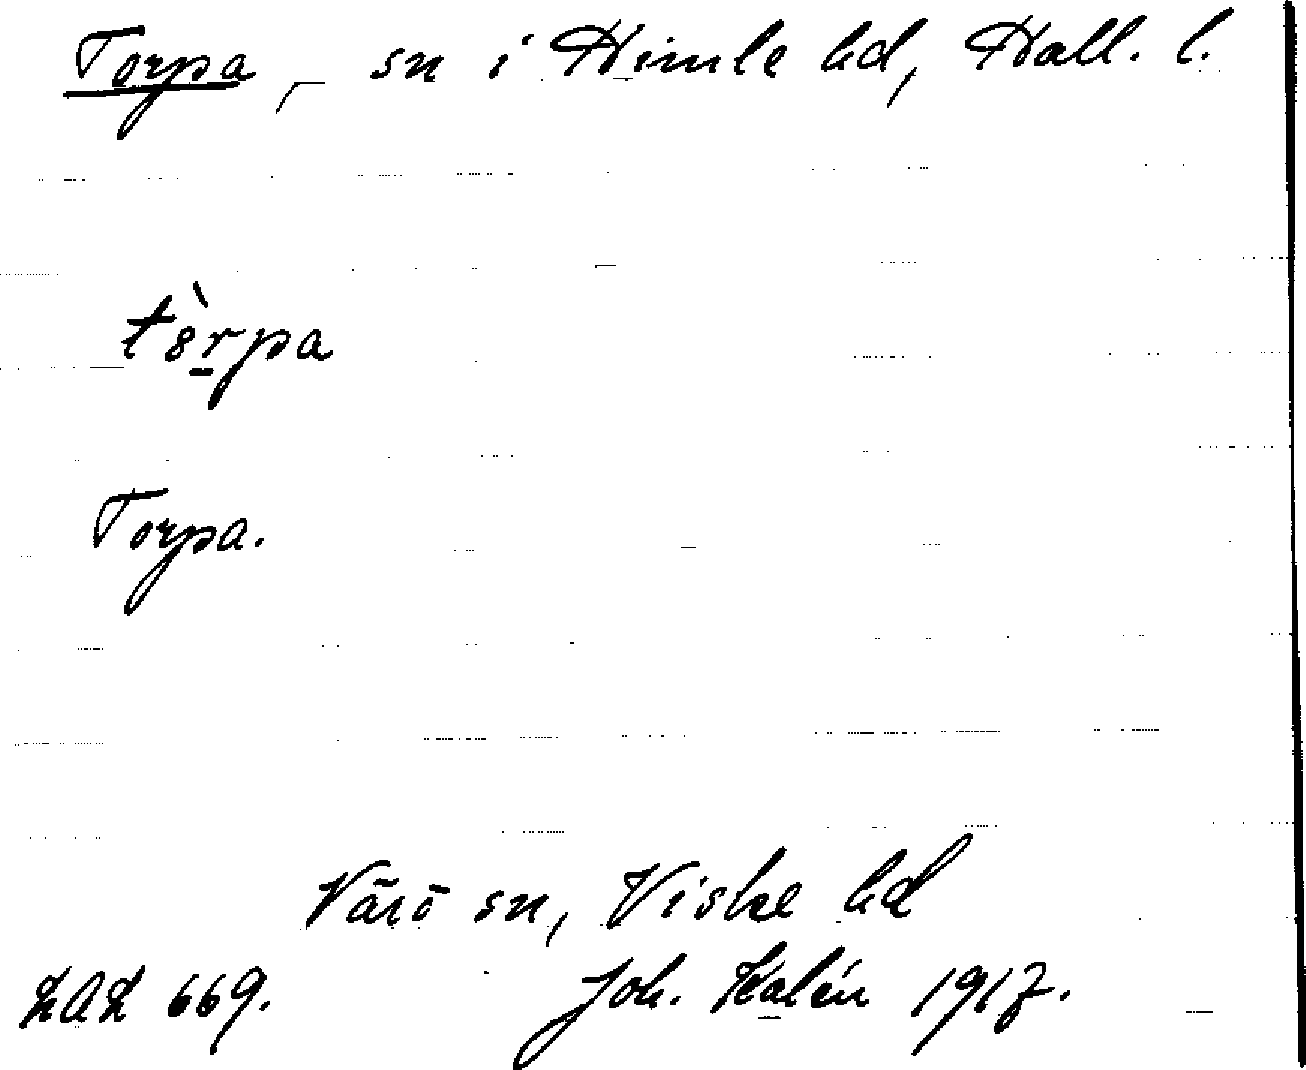 Torpa, sn i Himle hd, Hall. l.
tòrpa
Torpa.
Värö sn, Viske hd
LAL 669. Joh. Kalén 1917.